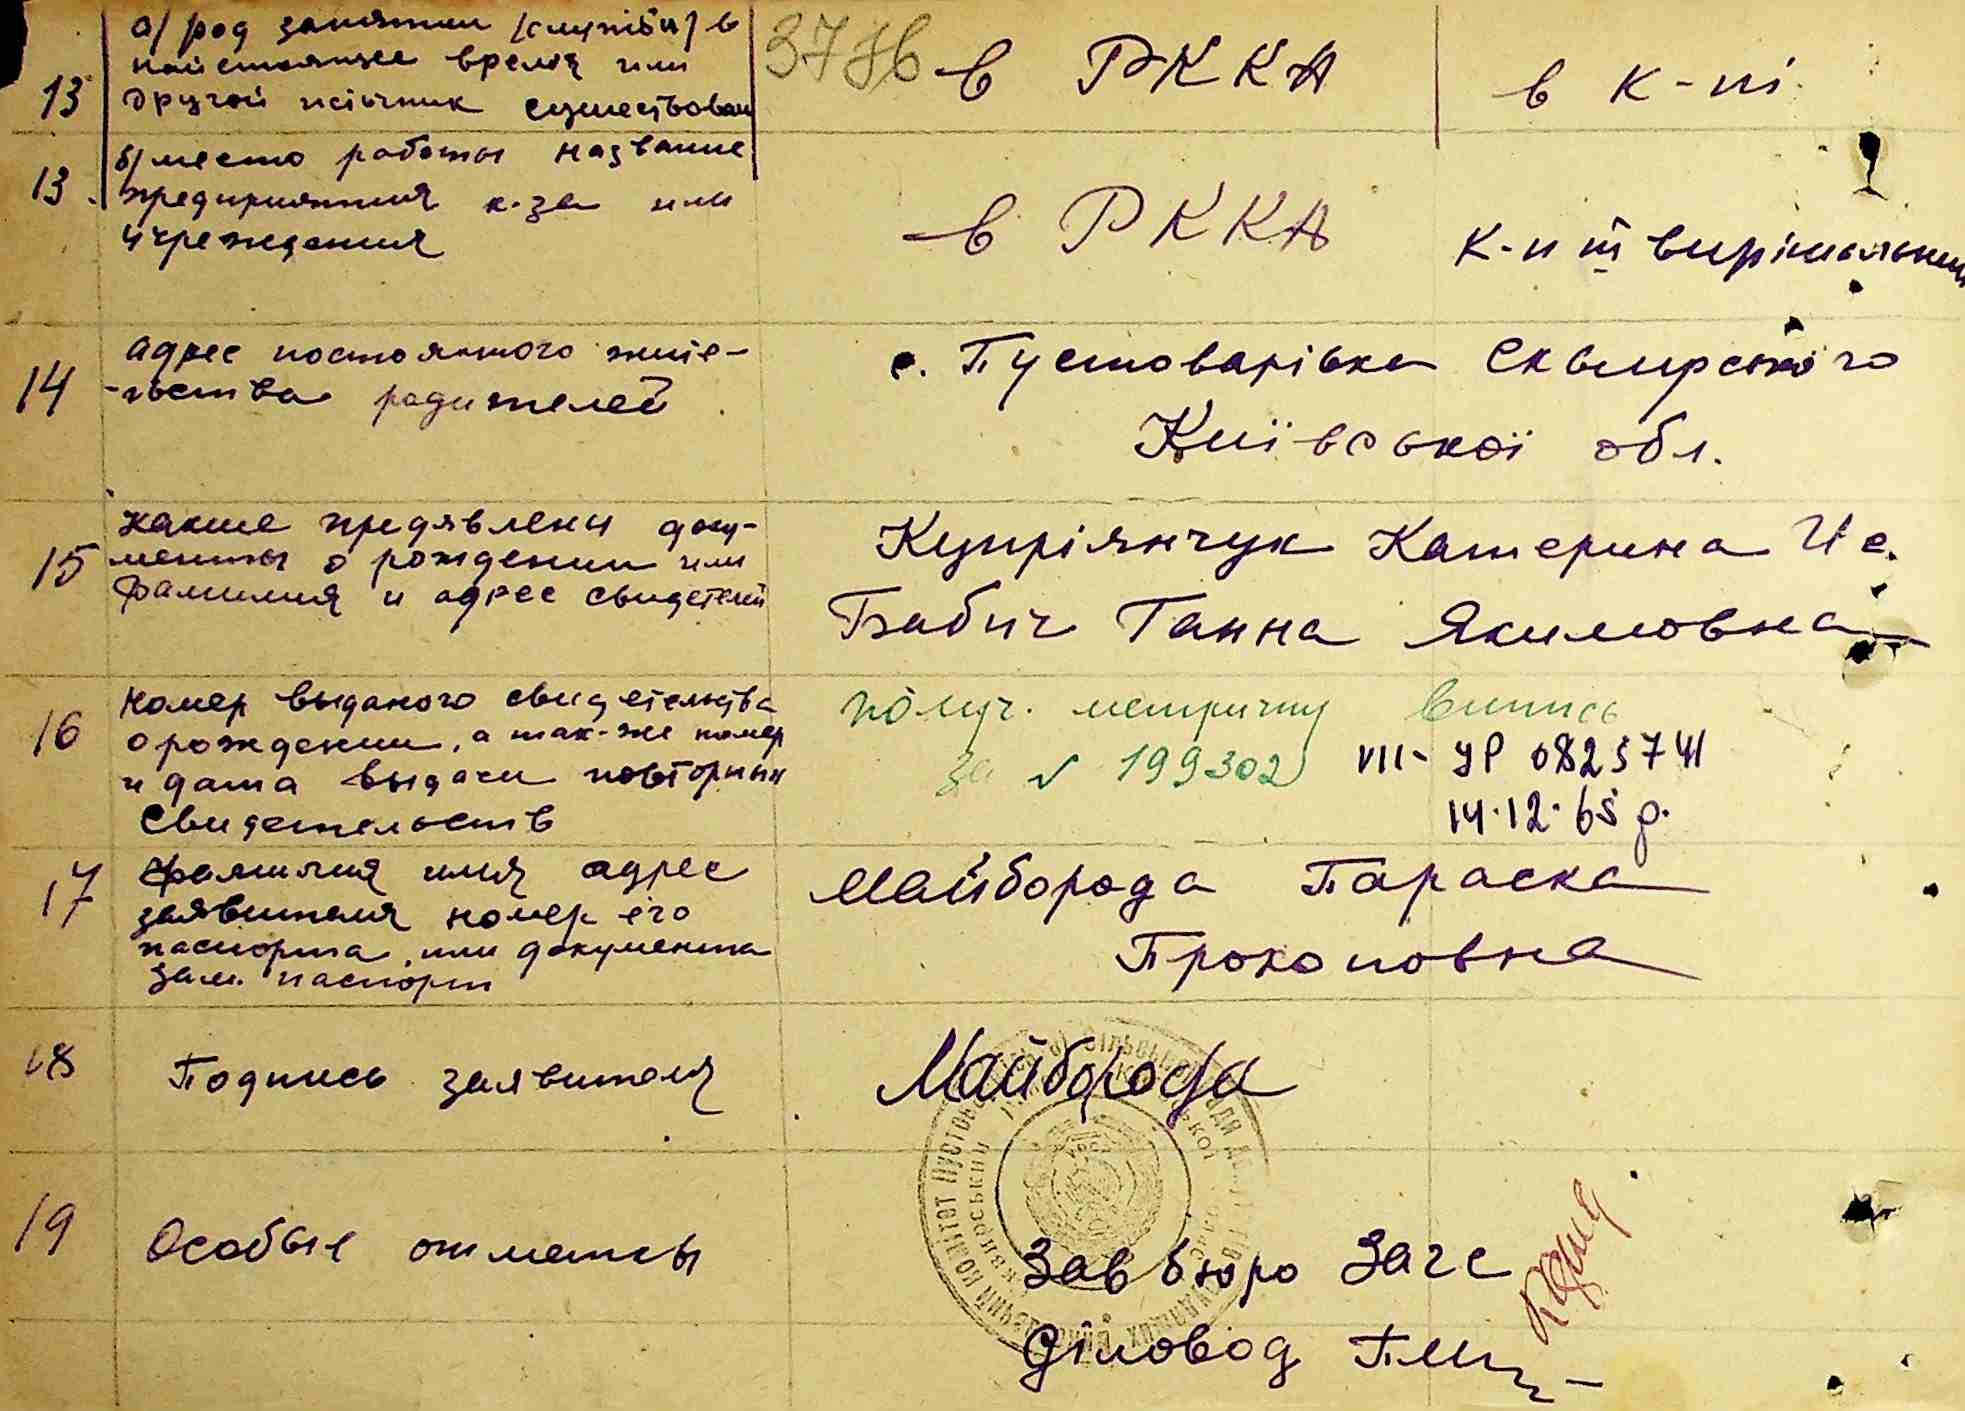 а/ род занятии /службы/ в
настоящее время или
другой источник существован
13
37
в РККА
в к-пі.
13.
б/ место работы название
предприятия к-за или
учреждения
в РККА
к-п
14
Адрес постоянного жите-
-льства родителей
с. Пустоварівка Сквирського
Київської обл.
15
Какие предявлены доку-
менты о рождении или
фамилия и адрес свидетелей
Купріянчук Катерина Ис.
Бабич Ганна Якимовна
16
Номер выданого свидетельства
о рождении, а так-же номер
и дата выдачи повторных
свидетельств
получ. метричну випись
за № 199302
VII-УР 0823741
14.12.65 р.
17
Фамилия имя адрес
заявителя номер его
паспорта, или документа
зам. паспорт
Майборода Параска
Прокоповна
18
Подпись заявителя
Майборода
19
Особые отметки
Зав бюро Загс
Діловод